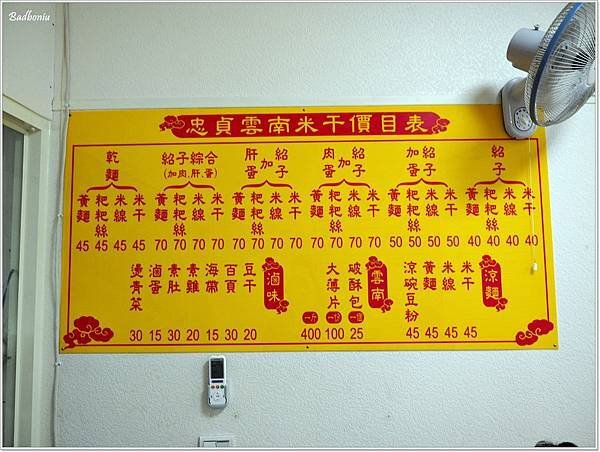 Badboniu
忠貞雲南米干價目表
紹子
米干
米線
粑粑絲
黃麵
40 40 40 40
紹子
加蛋
米干
米線
粑粑絲
黃麵
50 50 50 50
紹子
加
肉蛋
米干
米線
粑粑絲
黃麵
70 70 70 70
紹子
加
肝蛋
米干
米線
粑粑絲
黃麵
70 70 70 70
紹子綜合
(加肉,肝,蛋)
米干
米線
粑粑絲
黃麵
70 70 70 70
乾麵
米干
米線
粑粑絲
黃麵
45 45 45 45
涼麵
米干
米線
黃麵
涼碗豆粉
45 45 45 45
雲南
破酥包
大薄片
400 100 25
滷味
豆干
百頁
海帶
素雞
素肚
滷蛋
燙青菜
30 15 30 20 15 30 20